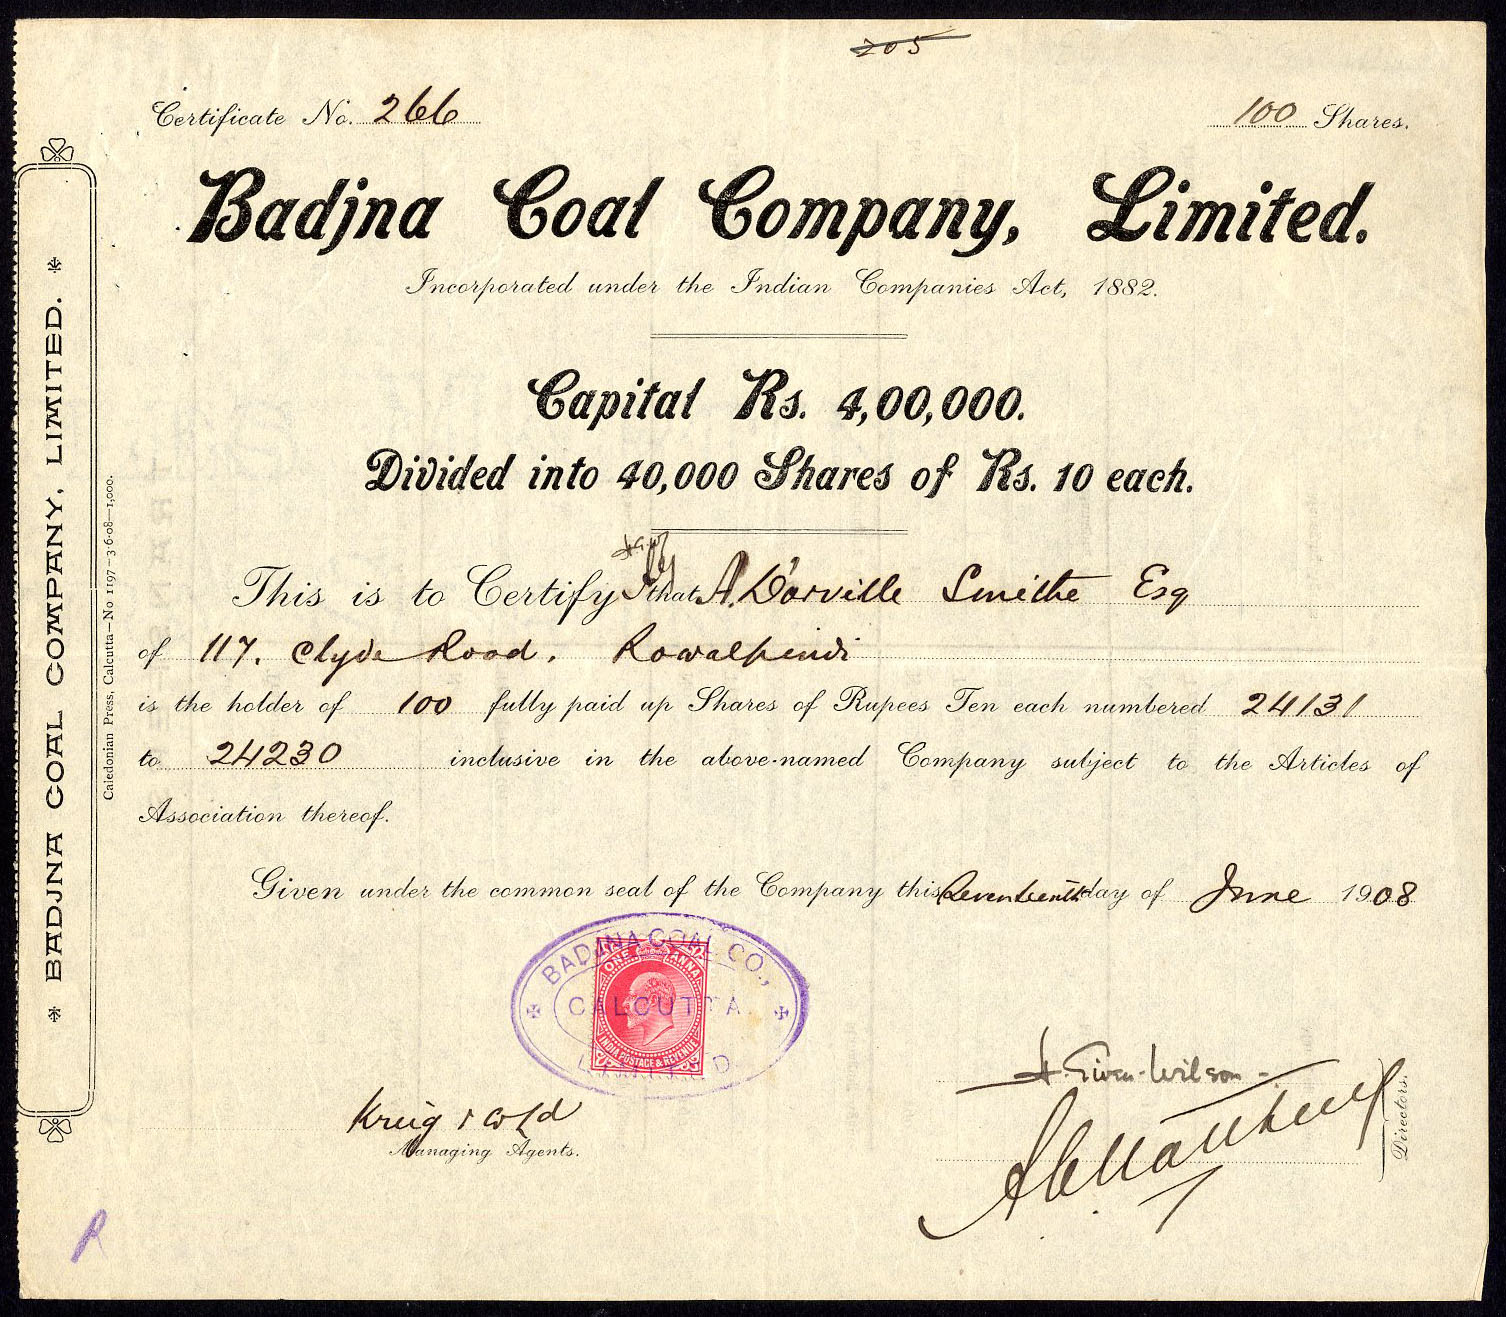 205
Certificate No. 266
100 Shares.
Badjna Coal Company, Limited.
Incorporated under the Indian Companies Act, 1882.
Capital Rs. 4,00,000.
Divided into 40,000 Shares of Rs. 10 each.
This is to Certify that A. D'orville Smithe Esq
of 117. Clyde Road. Rowalpindi
is the holder of 100 fully paid up Shares of Rupees Ten each numbered 24131
to 24230 inclusive in the above-named Company subject to the Articles of
Association thereof.
Given under the common seal of the Company this Seventeenth day of June 1908
BADJNA COAL CO.,
CALCUTTA
LIMITED
ONE ANNA
INDIA POSTAGE & REVENUE
H. Given-Wilson
Directors.
Managing Agents.
BADJNA COAL COMPANY, LIMITED.
Caledonian Press, Calcutta—No 1197—3-6-08—1,000.
R